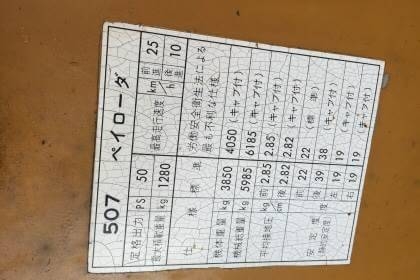 507 ペイローダ
定格出力 PS 50 最高走行速度 km/h 前進 25
最大積載重量 kg 1280 後進 10
仕様 標準 労働安全衛生法による最も不利な仕様
機体重量 kg 3850 4050 (キャブ付)
機械総重量 kg 5985 6185 (キャブ付)
平均接地圧 kg/cm² 前 2.85 2.85 (キャブ付)
後 2.82 2.82 (キャブ付)
安定度 度 前 22 22 (標準)
(静的安定度) 後 39 38 (キャブ付)
左 19 19 (キャブ付)
右 19 19 (キャブ付)